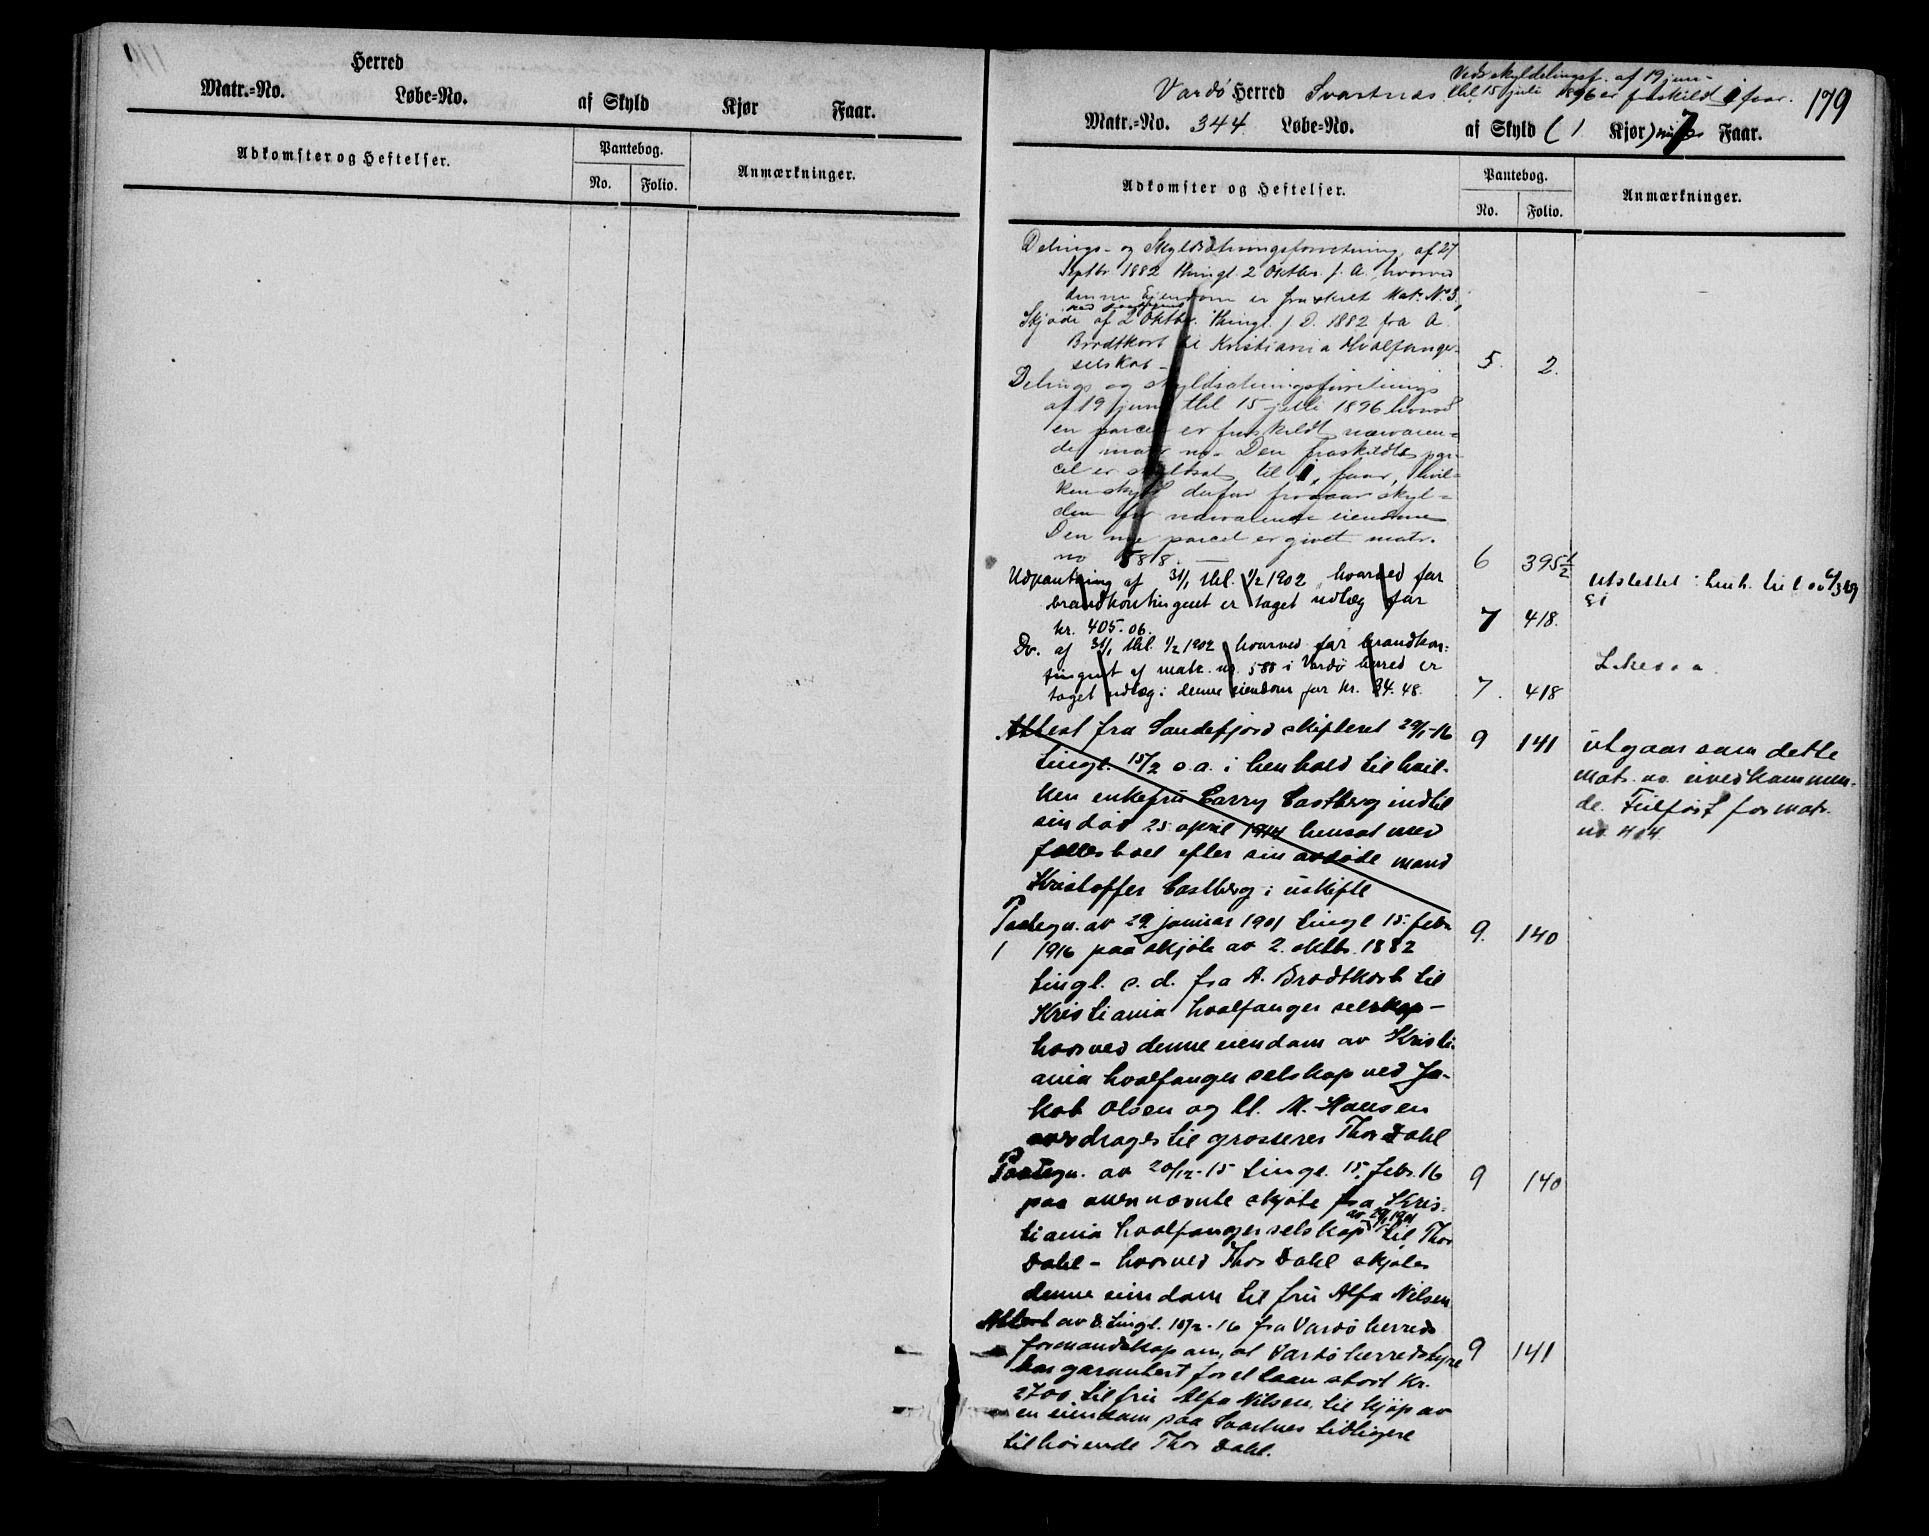 Herred
Matr.=No. Løbe=No. af Skyld Kjør Faar.
Adkomster og Heftelser. Pantebog. Anmærkninger.
No. Folio.
Vedr skyldelingsf. af 19 juni
Vardö Herred Svartnæs thl. 15 juli 1896 er fraskild 1 faar. 179
Matr.=No. 344 Løbe=No. af Skyld (1 Kjør) 7 Faar.
Adkomster og Heftelser. Pantebog. Anmærkninger.
No. Folio.
Delings- og Skyldsætningsforretning af 27
Septbr 1882 thingl. 2 Oktbr. s. A. hvorved
denne Ejendom er fraskilt Matr. No. 3,
Skjøde af 2 Oktbr. thingl. s. D. 1882 fra A.
Brodtkorb til Kristiania Hvalfanger-
selskab - 5. 2.
Delings og skyldsætningsforretning
af 19 juni thl 15 juli 1896 hvorved
en parcel er fraskildt nærværen-
de matr no. Den fraskildte par-
cel er skyldsat til 1 faar, hvil-
ken skyld derfor fragaar skyl-
den for nærværende eiendom
Den nye parcel er givet matr.
no 588. — 6 395 1/2
Udpantning af 31/1 thl. 1/2 1902, hvorved for
brandkontingent er taget udlæg for
kr. 405.06. 7 418.
Utslettet i henh. til lov 6/3 69
§1
Do. af 31/1 thl. 1/2 1902 hvorved for brandkon-
tingent af matr. no. 588 i Vardö herred er
taget udlæg i denne eiendom for kr. 34.48. 7. 418
Likesaa.
Attest fra Sandefjord skifteret 29/1-16 9 141
tingl. 15/2 s.a. i henhold til hvil-
ken enkefru Carry Castberg indtil
sin død 25 april 1914 hensat med
fællesboet efter sin avdøde mand
Kristoffer Castberg i uskifte
utgaar som dette
matr. no. uvedkommen-
de. Tilført for matr.
no 404
Paategn. av 29 januar 1901 tingl 15. febr 9. 140
1 1916 paa skjøte av 2. oktbr. 1882
tingl. s. d. fra A. Brodtkorb til
Kristiania hvalfanger selskap -
hvorved denne eiendom av Kristi-
ania hvalfanger selskap ved Ja-
kob Olsen og M. Hansen
overdrages til grosserer Thor Dahl
Paategn. av 20/12-15 tingl. 15. febr. 16 9 140
paa overnævnte skjøte fra Kris-
av 29/1 1901
tiania hvalfangerselskap til Thor
Dahl - hvorved Thor Dahl skjøter
denne eiendom til fru Alfa Nilsen
Attest av d. tingl. 15/2-16 fra Vardö herreds
formandskap om, at Vardö herredstyre 9 141
har garantert for et laan stort kr.
2700 til fru Alfa Nilsen til kjøp av
en eiendom paa Svartnes tidligere
tilhørende Thor Dahl.